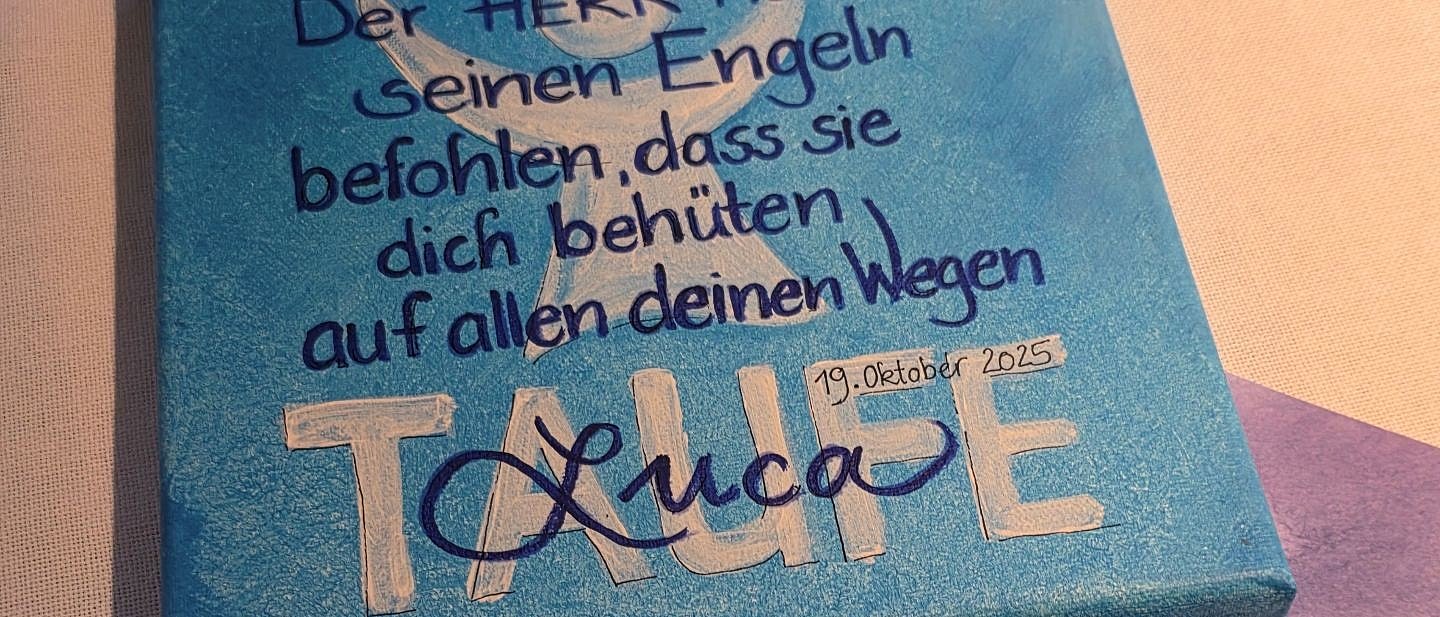 Der HERR
seinen Engeln
befohlen, dass sie
dich behüten
auf allen deinen Wegen
19. Oktober 2025
TAUFE
Luca